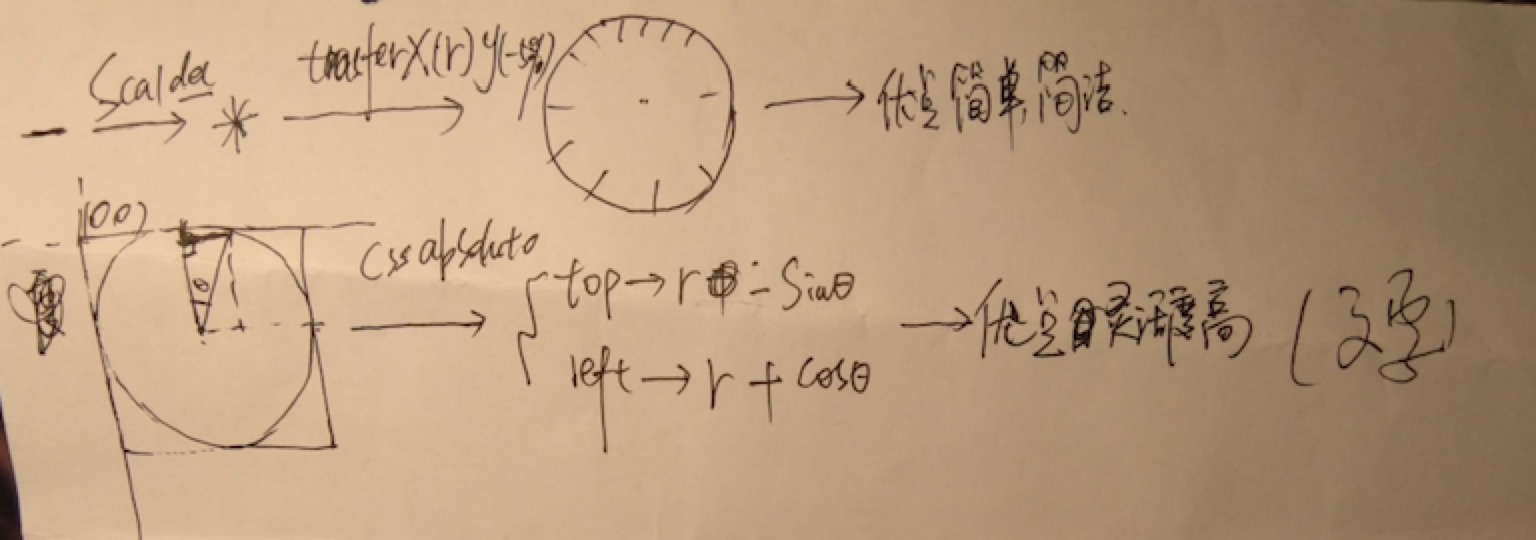 Scalda transferX(r) y(-50%) 优点 简单,简洁.
(00)
css absoluto
top → r - Sinθ
left → r + cosθ
θ
→ 优点 灵活度高 (文字)